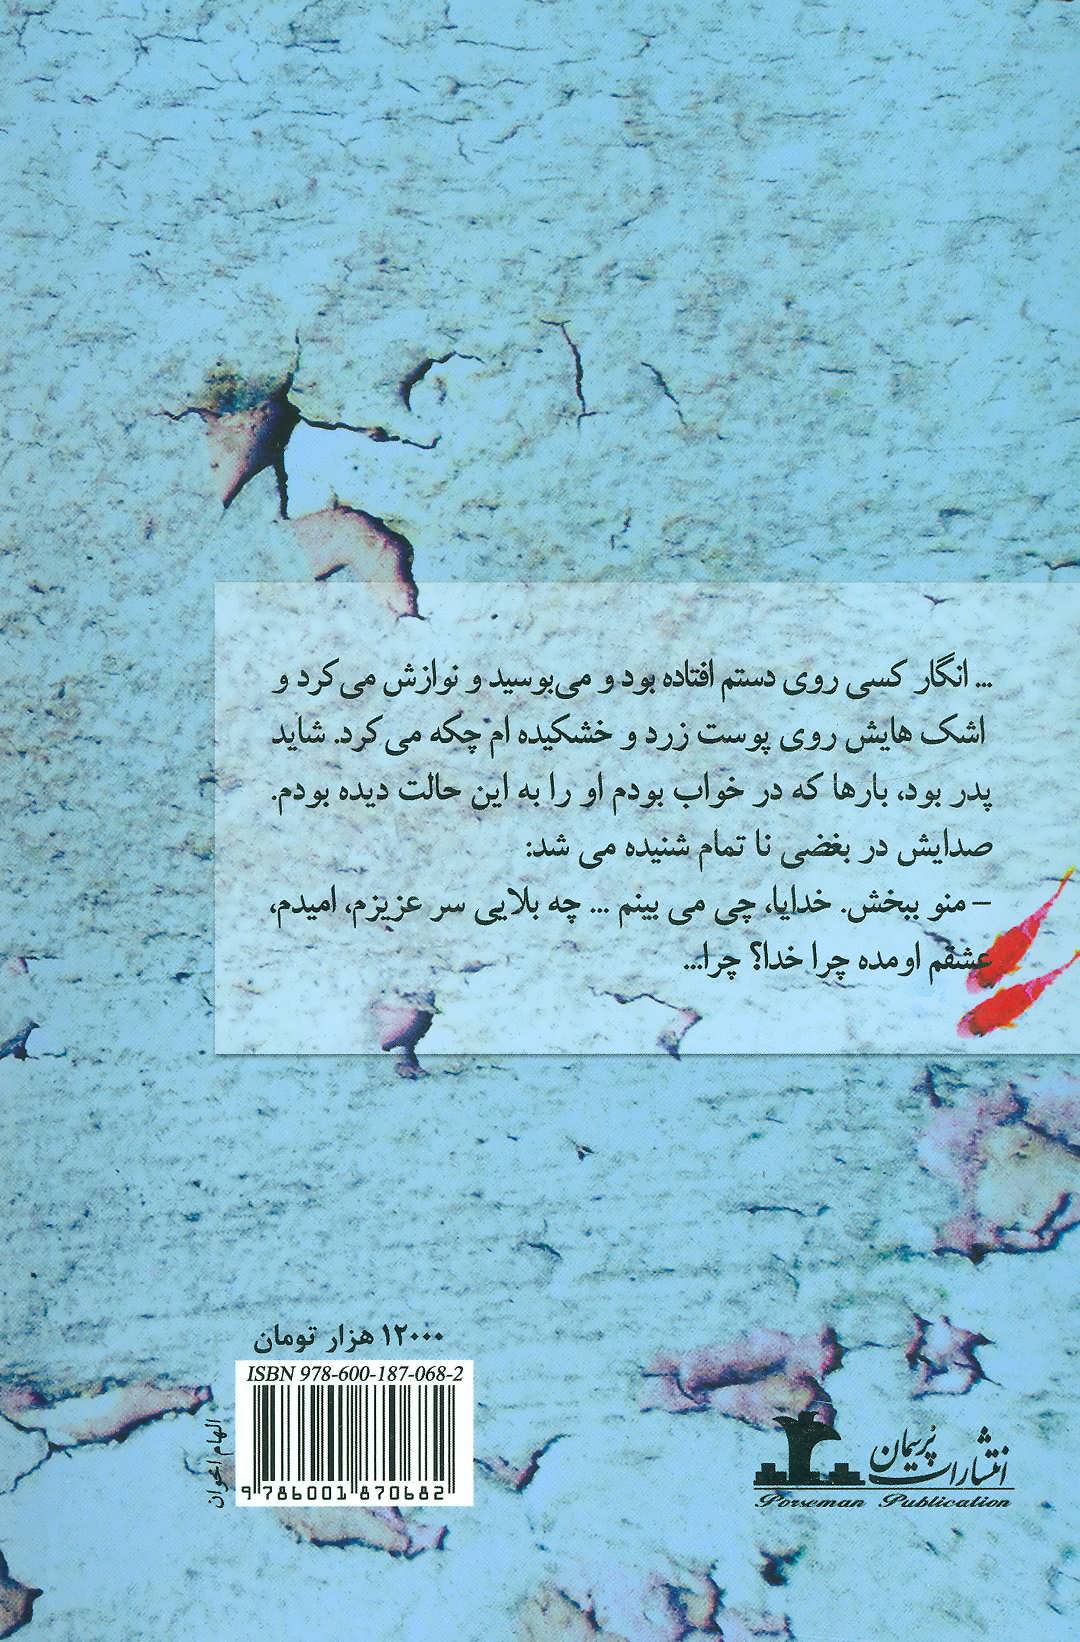 ... انگار کسی روی دستم افتاده بود و می‌بوسید و نوازش می‌کرد و
اشک هایش روی پوست زرد و خشکیده ام چکه می‌کرد. شاید
پدر بود، بارها که در خواب بودم او را به این حالت دیده بودم.
صدایش در بغضی نا تمام شنیده می شد:
– منو ببخش. خدایا، چی می بینم ... چه بلایی سر عزیزم، امیدم،
عشقم اومده چرا خدا؟ چرا...
۱۲۰۰۰ هزار تومان
ISBN 978-600-187-068-2
9 786001 870682
الهام اخوان
انتشارات پُرسمان
Porseman Publication